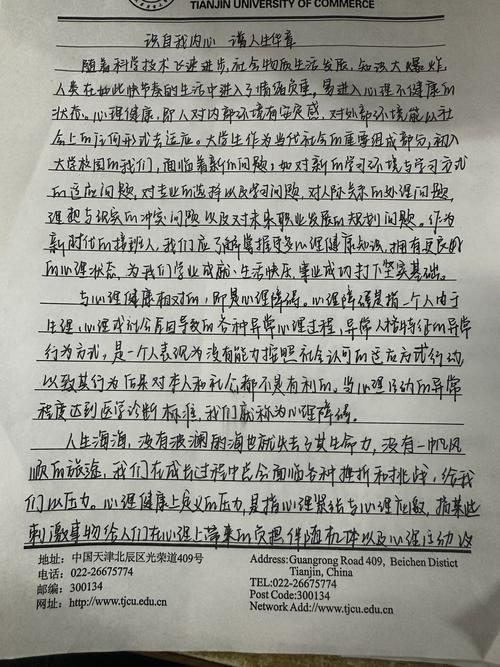 TIANJIN UNIVERSITY OF COMMERCE
识自我内心 谱人生华章
随着科学技术飞速进步,社会物质生活发展,知识大爆炸,
人类在如此快节奏的生活中进入了情绪负重,易进入心理不健康的
状态。心理健康,即人对内部环境有安定感,对外部环境能以社
会上的任何形式去适应。大学生作为当代社会的重要组成部分,初入
大学校园的我们,面临着新的问题,如对新的学习环境与学习方式
的适应问题,对专业的选择以及学习问题,对人际关系的处理问题,
理想与现实的冲突问题以及对未来职业发展的规划问题。作为
新时代的接班人,我们应了解掌握更多心理健康知识,拥有更良好
的心理状态,为我们学业成就、生活快乐、事业成功打下坚实基础。
与心理健康相对的,即是心理障碍。心理障碍是指一个人由于
生理、心理或社会原因导致的各种异常心理过程、异常人格特征的异常
行为方式,是一个人表现为没有能力按照社会认可的适应方式行动,
以致其行为后果对本人和社会都不具有利的。当心理活动的异常
程度达到医学诊断标准,我们就称为心理障碍。
人生海海,没有波澜的海也就失去了其生命力,没有一帆风
顺的旅途,我们在成长过程中总会面临各种挫折和挑战,给我
们以压力。心理健康上定义的压力,是指心理紧张与心理应激,指某些
刺激事物给人们在心理上带来的负担伴随机体以及心理活动设
地址:中国天津北辰区光荣道409号
电话:022-26675774
邮编:300134
网址:http://www.tjcu.edu.cn
Address:Guangrong Road 409, Beichen Distict
Tianjin, China
TEL:022-26675774
Post Code:300134
Network Add:http://www.tjcu.edu.cn